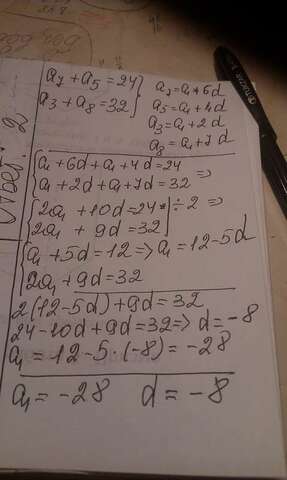 a₇ + a₅ = 24 } a₇ = a₁ + 6d
a₃ + a₈ = 32 } a₅ = a₁ + 4d
a₃ = a₁ + 2d
a₈ = a₁ + 7d
{ a₁ + 6d + a₁ + 4d = 24
{ a₁ + 2d + a₁ + 7d = 32 =>
{ 2a₁ + 10d = 24 | ÷ 2 =>
{ 2a₁ + 9d = 32
{ a₁ + 5d = 12 => a₁ = 12 - 5d
{ 2a₁ + 9d = 32
2(12 - 5d) + 9d = 32
24 - 10d + 9d = 32 => d = -8
a₁ = 12 - 5 · (-8) = -28
a₁ = -28 d = -8
Ответ: 2